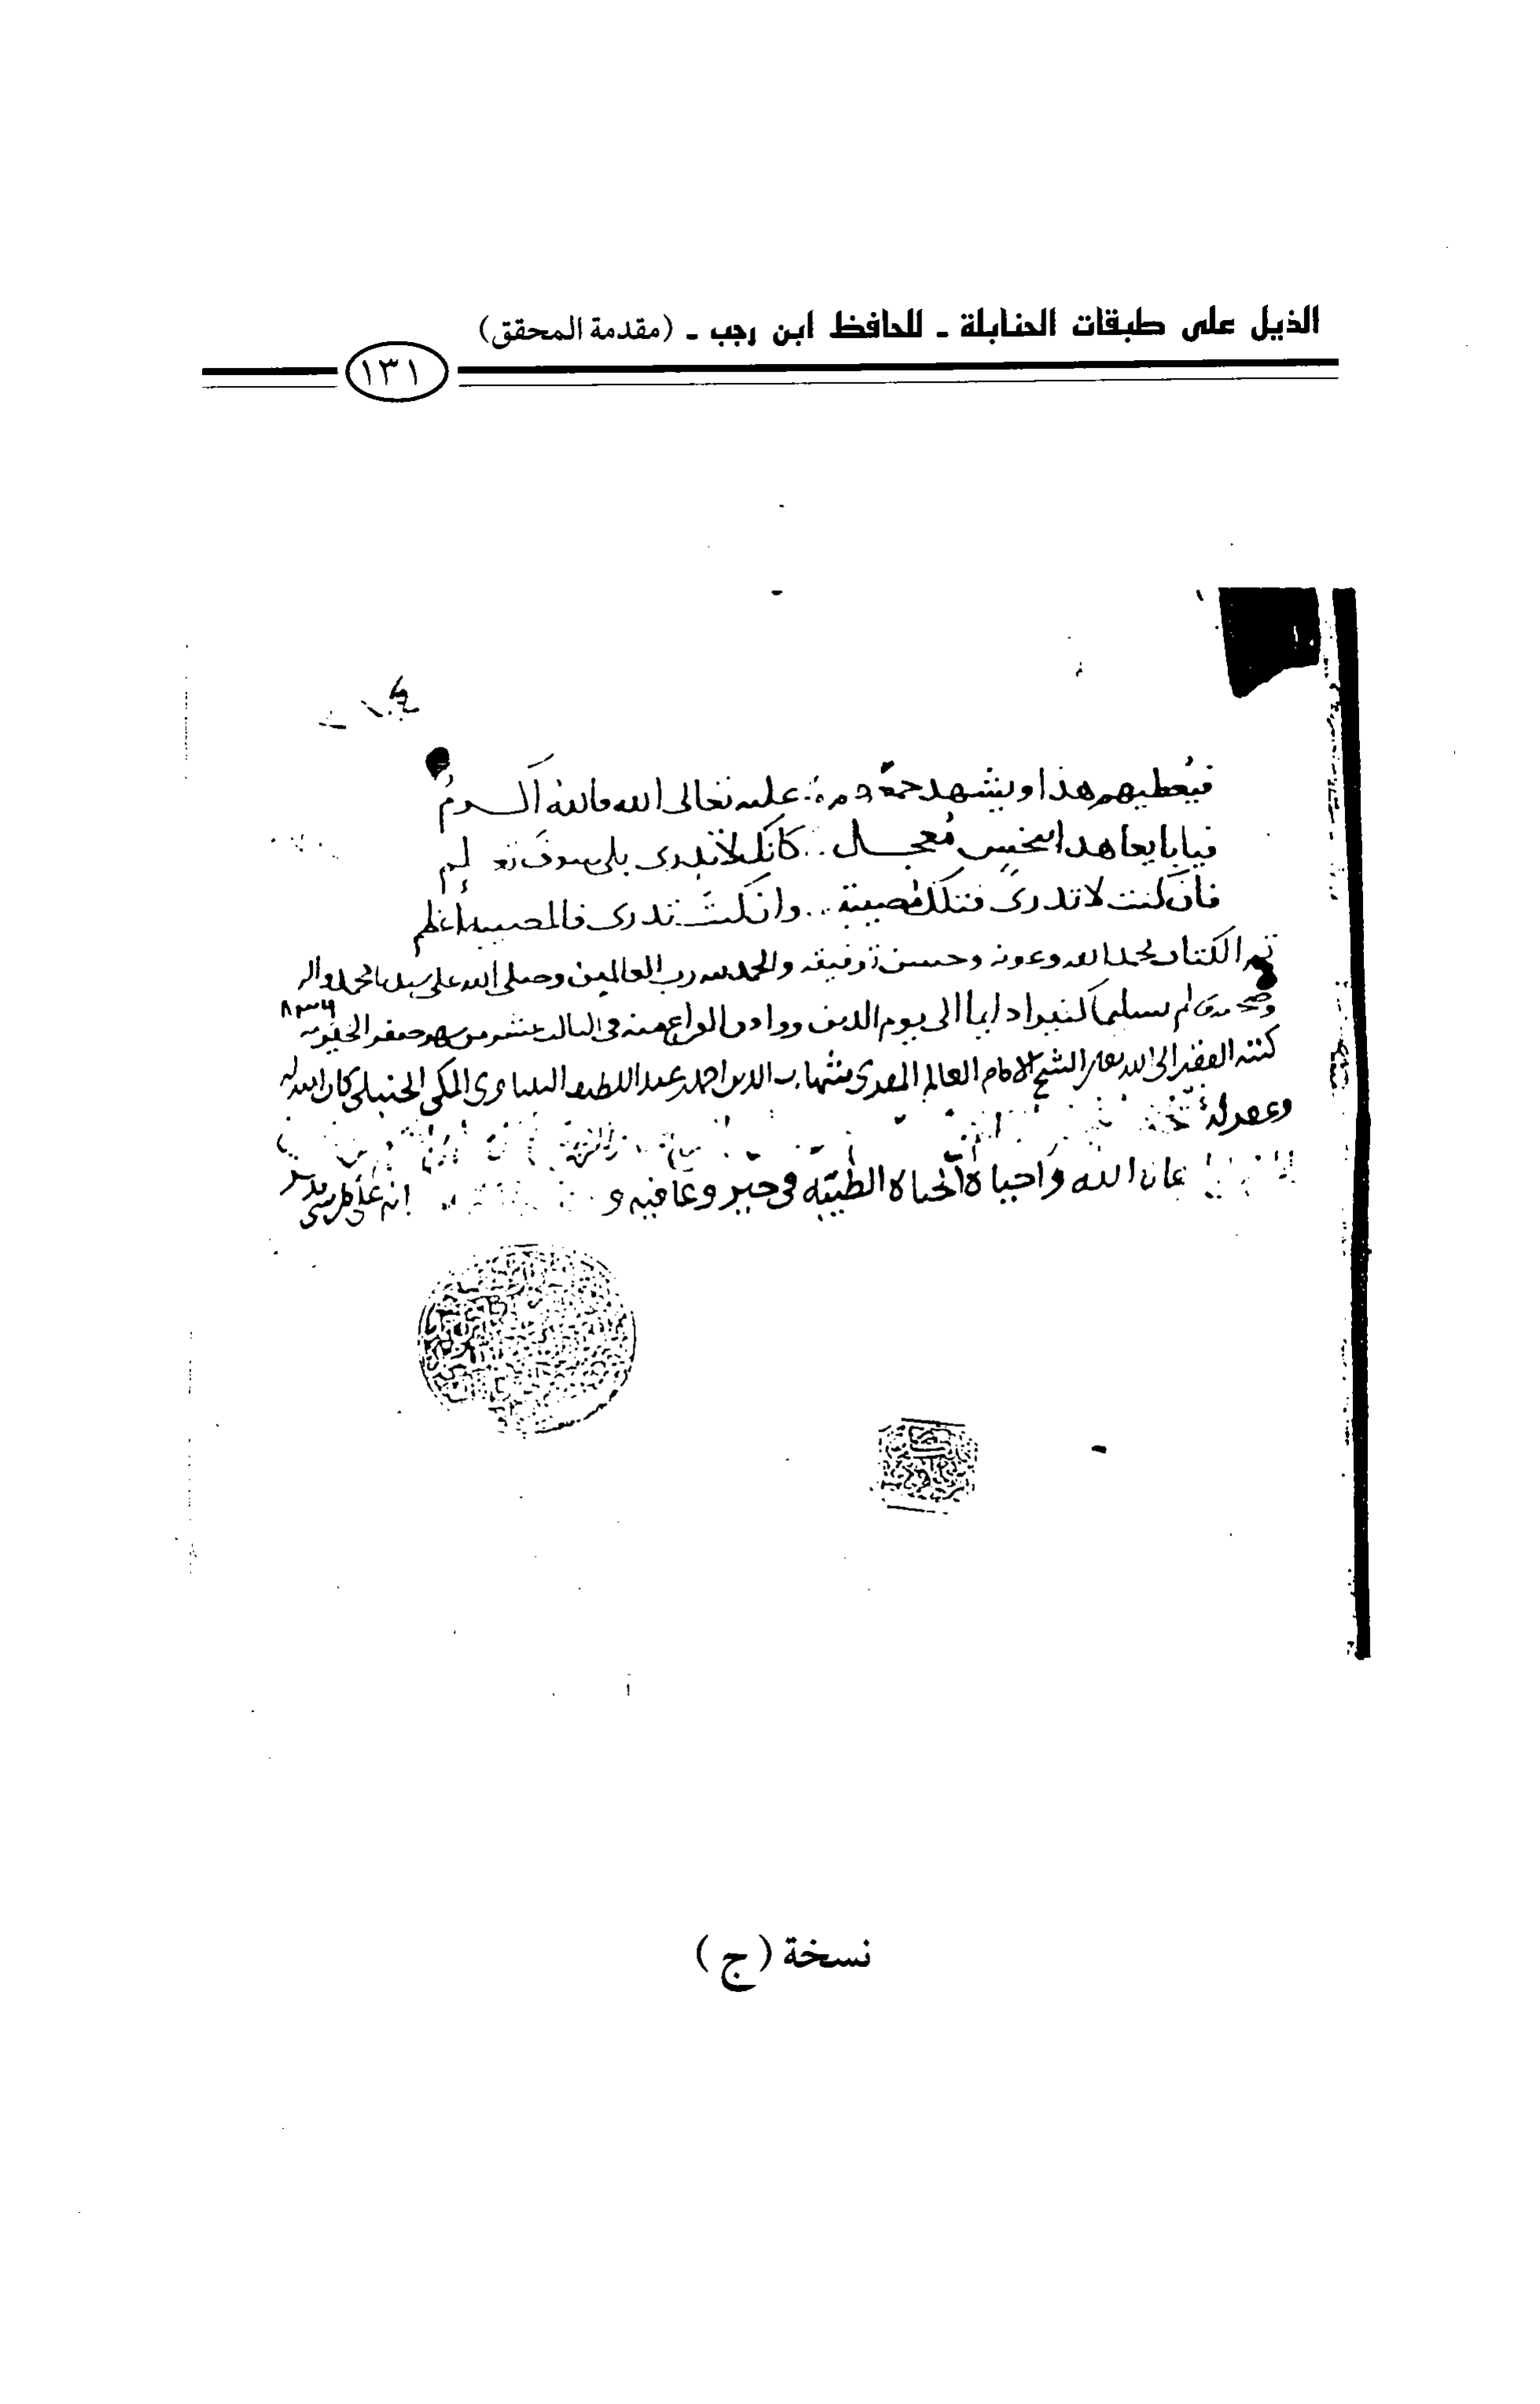 الذيل على طبقات الحنابلة - للحافظ ابن رجب - (مقدمة المحقق)
١٣١
فيعطيهم هذا ويشهد جمعة عليه تعالى الله فالله أكرم
فيا بايعا هذا ببخس معجل .. كأنك لا تدرى بلى سوف تعلم
فان كنت لا تدرى فتلك مصيبة .. وان كنت تدرى فالمصيبة أعظم
تم الكتاب بحمد الله وعونه وحسن توفيقه والحمد لله رب العالمين وصلى الله على سيدنا محمد واله
وصحبه وسلم تسليما كثيرا دايما الى يوم الدين ووافق الفراغ منه فى الثالث عشر من شهر صفر الخير سنة ٨٣٦
كتبه الفقير الى الله تعالى الشيخ الامام العالم شهاب الدين احمد عبد اللطيف المكى الحنبلى كان الله له
وغفر له
الله واحياه الحياة الطيبة فى خير وعافية و انه على كل شى قدير
نسخة (ج)